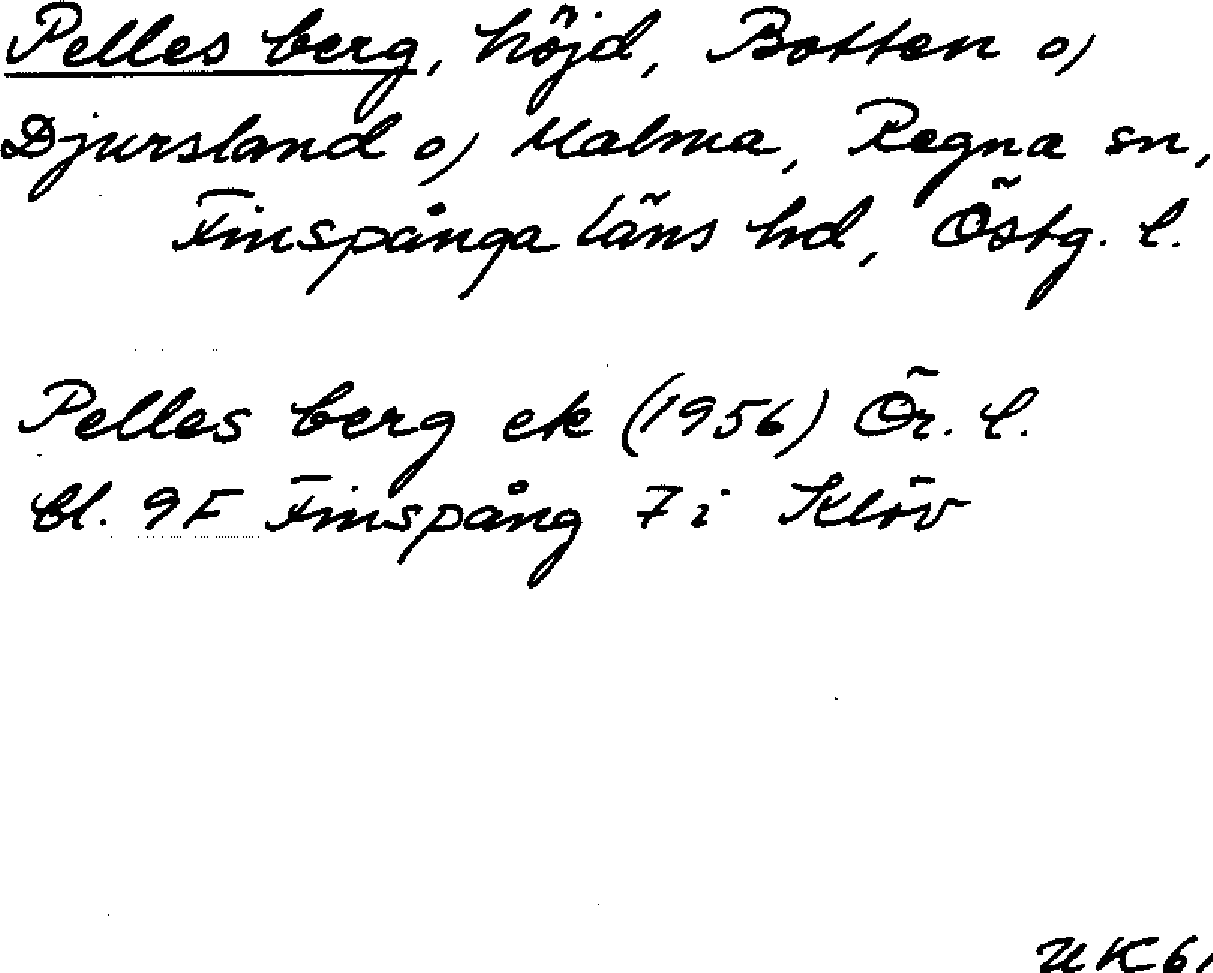 Pelles berg, höjd, Botten o/
Djursland o/ Malma, Regna sn,
Finspånga läns hd, Östg. l.
Pelles berg ek (1956) Ör. l.
bl. 9F Finspång 7i Klöv
UK61